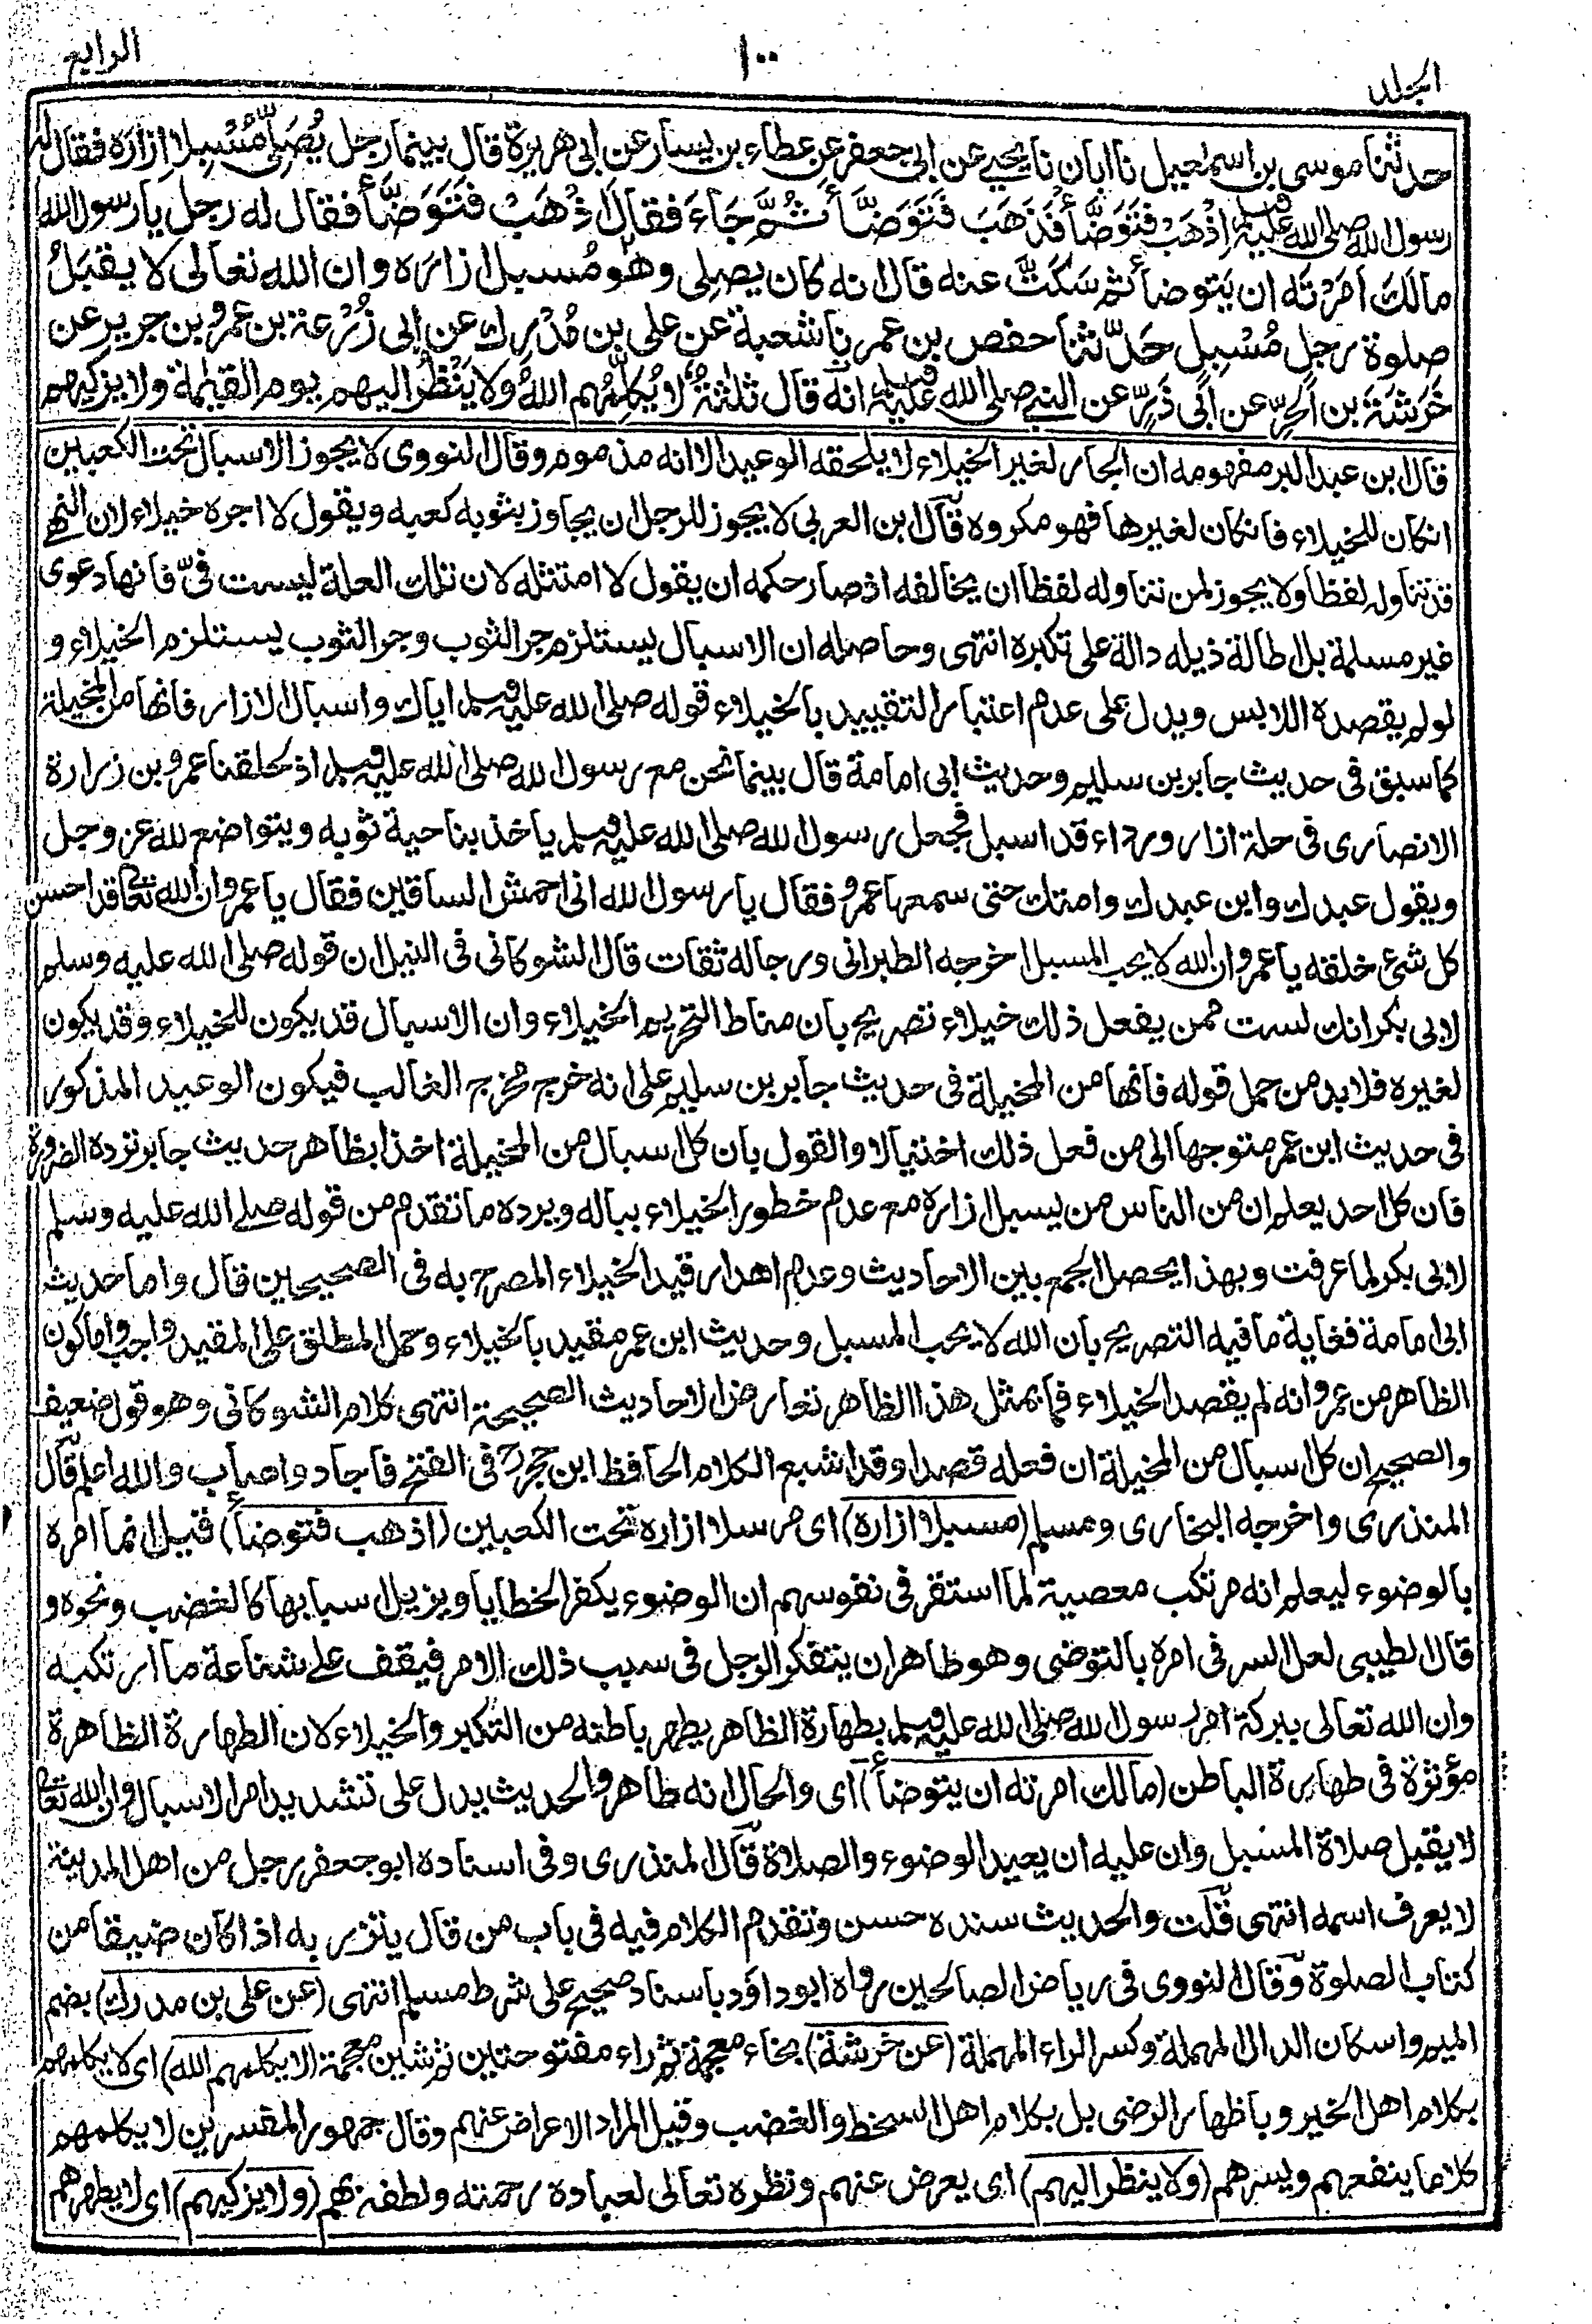 الجلد
١٠٠
الرابع
حدثنا موسى بن اسمعيل نا ابان نا يحيى عن ابى جعفر عن عطاء بن يسار عن ابى هريرة قال بينما رجل يُصَلِّى مُسْبِلا ازارَه فقال له
رسول الله صلى الله عليه وسلم اذْهَبْ فَتَوَضَّأْ فَذَهَبَ فَتَوَضَّأَ ثُمَّ جَاءَ فقال اذْهَبْ فَتَوَضَّأْ فقال له رجل يا رسول الله
مالَكَ اَمَرْتَه ان يَتوضأ ثم سَكَتَّ عنه قال انه كان يصلى وهو مُسبل ازارَه وان الله تعالى لا يقبَلُ
صلوة رجل مُسْبِل حَدَّثنا حفص بن عمر نا شعبة عن على بن مُدْرِك عن ابى زُرْعة بن عمرو بن جرير عن
خَرَشَةَ بن الحُرِّ عن اَبى ذَرٍّ عن النبى صلى الله عليه وسلم انه قال ثلثةٌ لا يُكلِّمُهم اللهُ ولا يَنْظُرُ اليهم يوم القيٰمة ولا يزكيهم
قال ابن عبد البر مفهومه ان الجار لغير الخيلاء لا يلحقه الوعيد الا انه مذموم وقال النووى لا يجوز الاسبال تحت الكعبين
انكان للخيلاء فانكان لغيرها فهو مكروه قال ابن العربى لا يجوز للرجل ان يجاوز بثوبه كعبه ويقول لا اجره خيلاء لان النهى
قد تناوله لفظا ولا يجوز لمن تناوله لفظا ان يخالفه اذ صار حكمه ان يقول لا امتثله لان تلك العلة ليست فىّ فانها دعوى
غير مسلمة بل اطالة ذيله دالة على تكبره انتهى وحاصله ان الاسبال يستلزم جر الثوب وجر الثوب يستلزم الخيلاء و
لو لم يقصده اللابس ويدل على عدم اعتبار التقييد بالخيلاء قوله صلى الله عليه وسلم اياك واسبال الازار فانها من المخيلة
كما سبق فى حديث جابر بن سليم وحديث ابى امامة قال بينما نحن مع رسول الله صلى الله عليه وسلم اذ لحقنا عمرو بن زرارة
الانصارى فى حلة ازار ورداء قد اسبل فجعل رسول الله صلى الله عليه وسلم ياخذ بناحية ثوبه ويتواضع لله عز وجل
ويقول عبدك وابن عبدك وامتك حتى سمعها عمرو فقال يا رسول الله انى احمش الساقين فقال يا عمرو ان الله تعالى قد احسن
كل شئ خلقه يا عمرو ان الله لا يحب المسبل اخرجه الطبرانى ورجاله ثقات قال الشوكانى فى النيل ان قوله صلى الله عليه وسلم
لابى بكر انك لست ممن يفعل ذلك خيلاء تصريح بان مناط التحريم الخيلاء وان الاسبال قد يكون للخيلاء وقد يكون
لغيره فلا بد من حمل قوله فانها من المخيلة فى حديث جابر بن سليم على انه خرج مخرج الغالب فيكون الوعيد المذكور
فى حديث ابن عمر متوجها الى من فعل ذلك اختيالا والقول بان كل اسبال من المخيلة اخذا بظاهر حديث جابر ترده الضرورة
فان كل احد يعلم ان من الناس من يسبل ازاره مع عدم خطور الخيلاء بباله ويرده ما تقدم من قوله صلى الله عليه وسلم
لابى بكر لما عرفت وبهذا يحصل الجمع بين الاحاديث وعدم اهدار قيد الخيلاء المصرح به فى الصحيحين قال واما حديث
ابى امامة فغاية ما فيه التصريح بان الله لا يحب المسبل وحديث ابن عمر مقيد بالخيلاء وحمل المطلق على المقيد واجب واما كون
الظاهر من عمرو انه لم يقصد الخيلاء فما بمثل هذا الظاهر تعارض الاحاديث الصحيحة انتهى كلام الشوكانى وهو قول ضعيف
والصحيح ان كل اسبال من المخيلة ان فعله قصدا وقد اشبع الكلام الحافظ ابن حجر رح فى الفتح فاجاد واصاب والله اعلم قال
المنذرى واخرجه البخارى ومسلم (مسبلا ازاره) اى مرسلا ازاره تحت الكعبين (اذهب فتوضأ) قيل انما امره
بالوضوء ليعلم انه مرتكب معصية لما استقر فى نفوسهم ان الوضوء يكفر الخطايا ويزيل اسبابها كالغضب ونحوه و
قال الطيبى لعل السر فى امره بالتوضى وهو طاهر ان يتفكر الرجل فى سبب ذلك الامر فيقف على شناعة ما ارتكبه
وان الله تعالى ببركة امر رسول الله صلى الله عليه وسلم بطهارة الظاهر يطهر باطنه من التكبر والخيلاء لان الطهارة الظاهرة
مؤثرة فى طهارة الباطن (مالك امرته ان يتوضأ) اى والحال انه طاهر والحديث يدل على تشديد امر الاسبال وان الله تعالى
لا يقبل صلاة المسبل وان عليه ان يعيد الوضوء والصلاة قال المنذرى وفى اسناده ابو جعفر رجل من اهل المدينة
لا يعرف اسمه انتهى قلت والحديث سنده حسن وتقدم الكلام فيه فى باب من قال يتزر به اذا كان ضيقا من
كتاب الصلوة وقال النووى فى رياض الصالحين رواه ابو داؤد باسناد صحيح على شرط مسلم انتهى (عن على بن مدرك) بضم
الميم واسكان الدال المهملة وكسر الراء المهملة (عن خرشة) بخاء معجمة ثم راء مفتوحتين ثم شين معجمة (لا يكلمهم الله) اى لا يكلمهم
بكلام اهل الخير وباظهار الرضى بل بكلام اهل السخط والغضب وقيل المراد الاعراض عنهم وقال جمهور المفسرين لا يكلمهم
كلاما ينفعهم ويسرهم (ولا ينظر اليهم) اى يعرض عنهم ونظره تعالى لعباده رحمته ولطفه بهم (ولا يزكيهم) اى لا يطهرهم